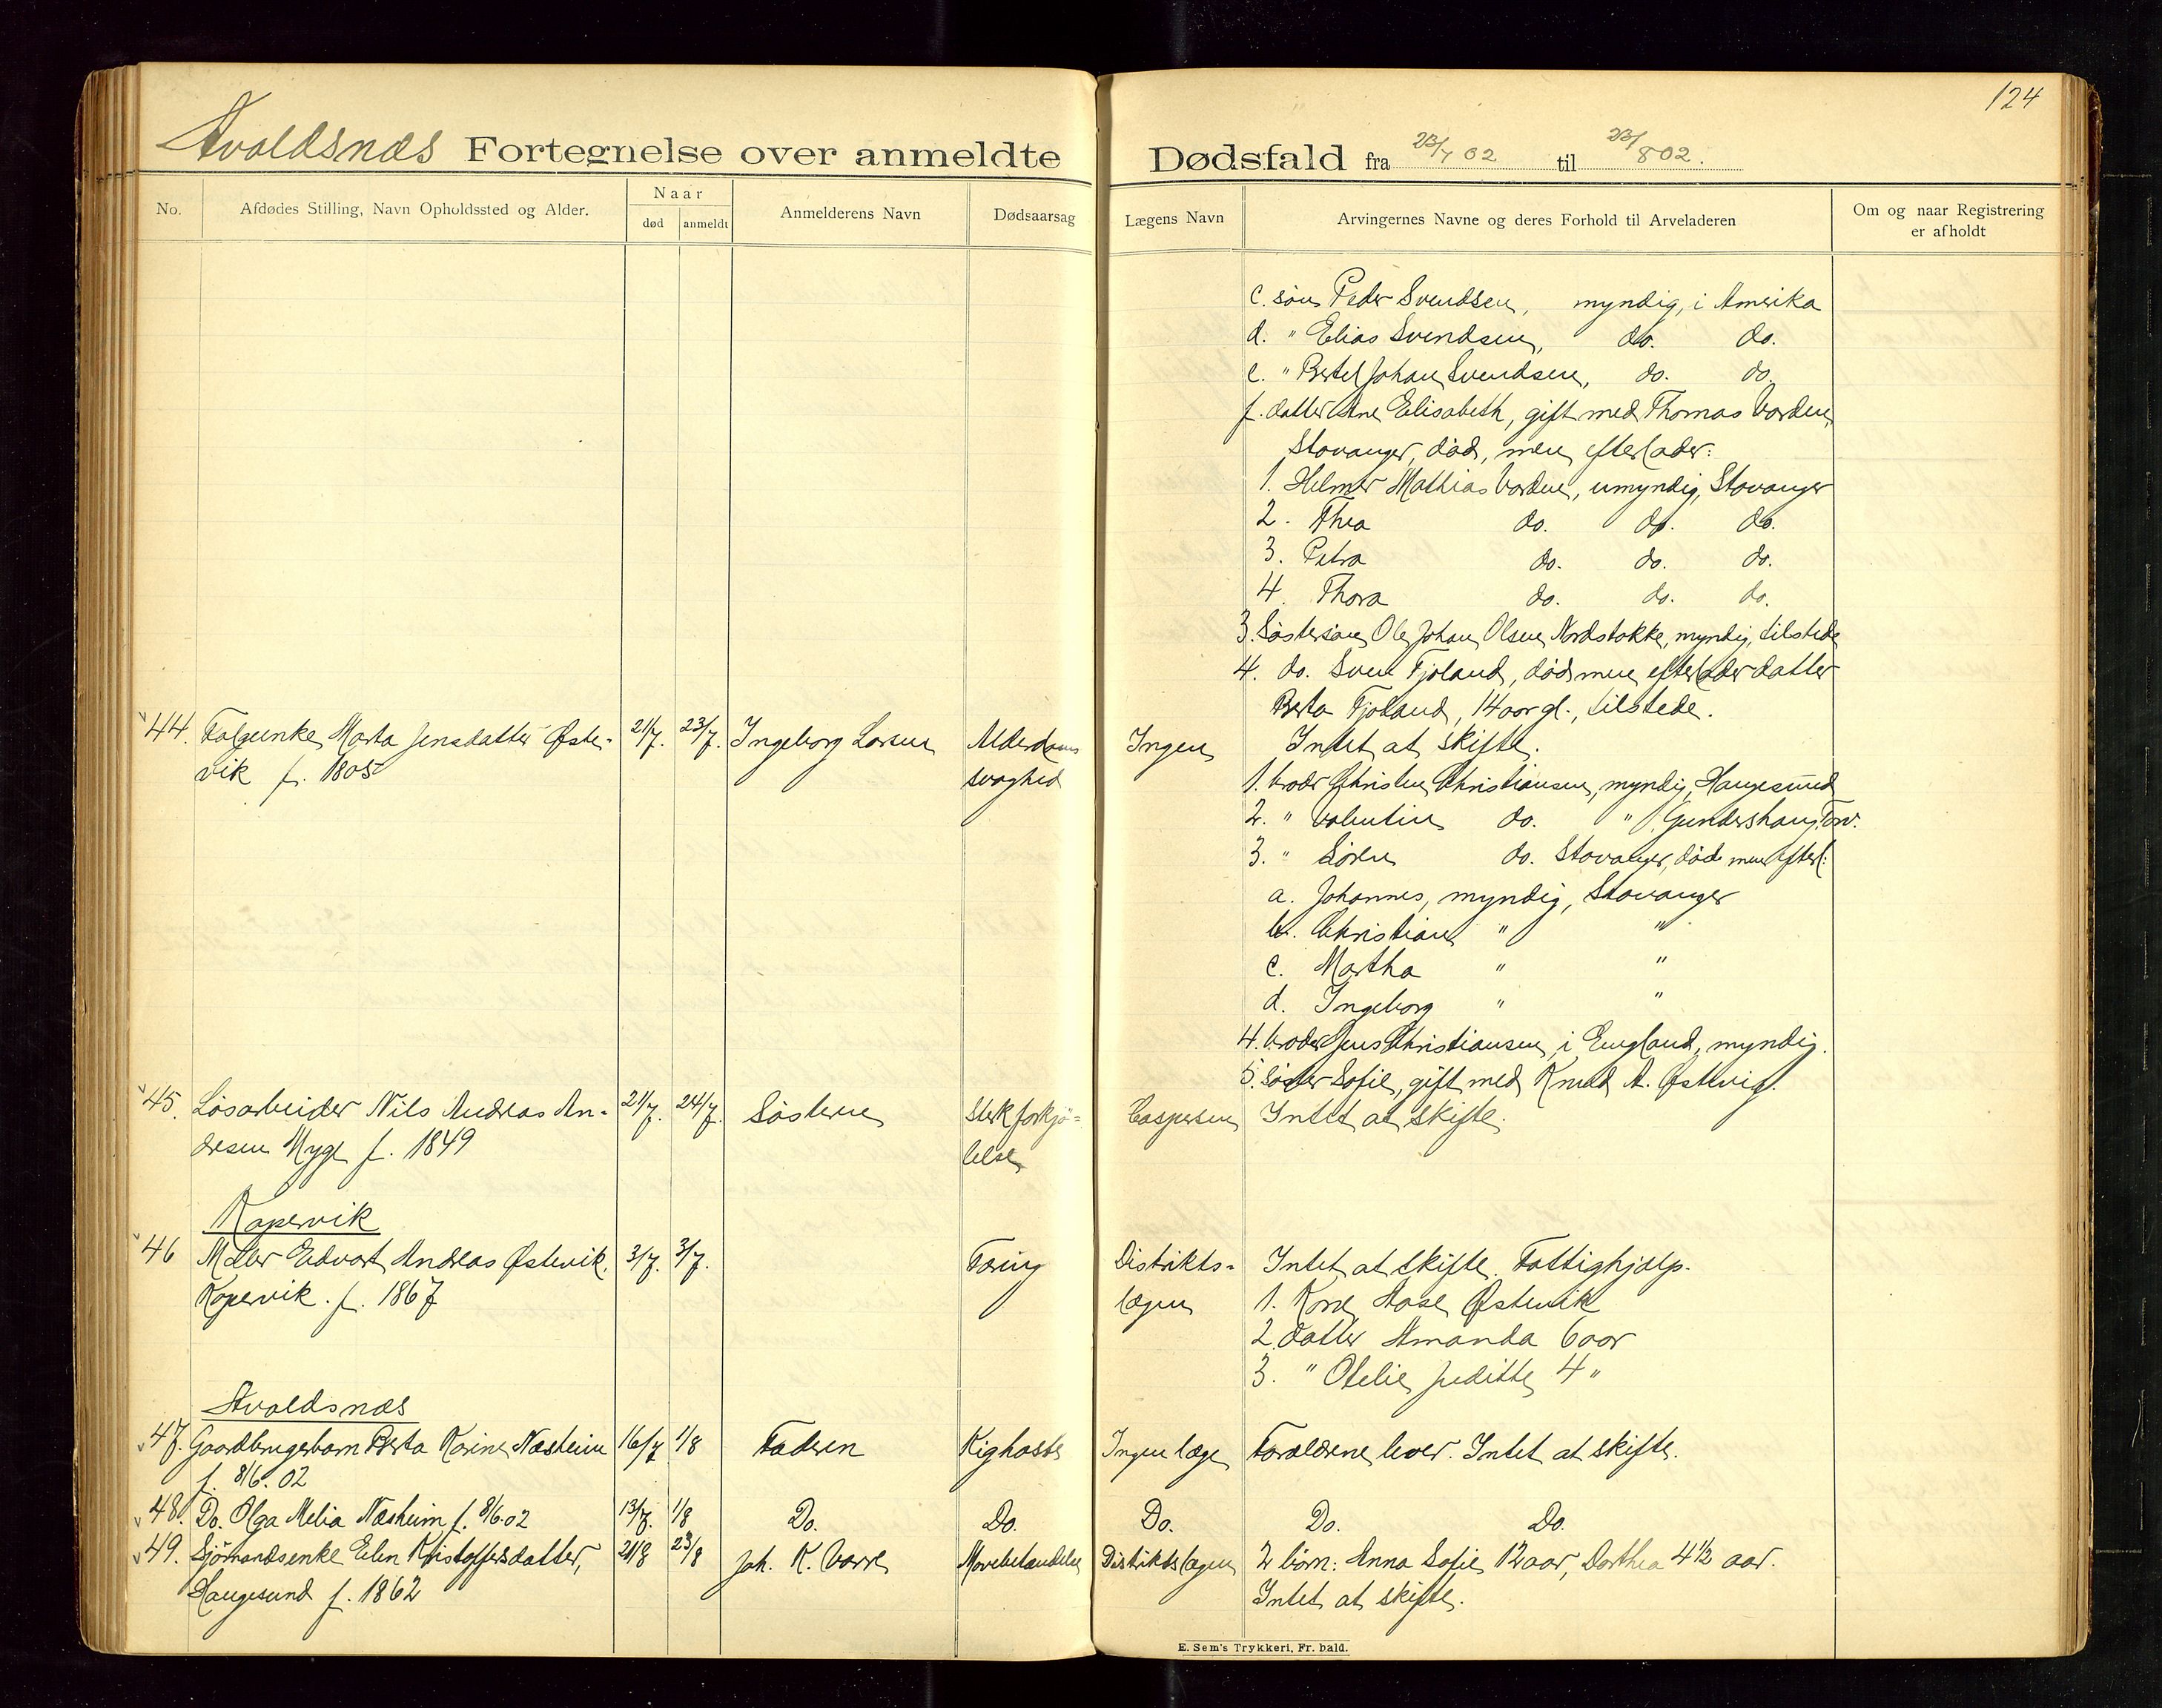 124
Avaldsnæs Fortegnelse over anmeldte Dødsfald fra 23/7 02 til 23/8 02.
No. Afdødes Stilling, Navn Opholdssted og Alder. Naar død anmeldt Anmelderens Navn Dødsaarsag Lægens Navn Arvingernes Navne og deres Forhold til Arveladeren Om og naar Registrering er afholdt
c. søn Peder Svendsen, myndig, i Amerika
d. " Elias Svendsen, do. do.
e. " Bertel Johan Svendsen, do. do.
f. datter Ane Elisabeth, gift med Thomas Varden,
Stavanger, død, men efterlader:
1. Helmer Mathias Varden, umyndig, Stavanger
2. Thea do. do. do.
3. Petra do. do. do.
4. Thora do. do. do.
3. Søstersøn Ole Johan Olsen Nordstokke, myndig, tilstede
4. do. Sven Fjoland, død men efterlader datter
Berta Fjoland, 14 aar gl., tilstede.
44. Marta Jensdatter Øste- 21/7. 23/7. Ingeborg Larsen Alderdoms Ingen Intet at skifte.
vik f. 1805 svaghed
1. broder Christen Christiansen, myndig, Haugesund
2. " Valentin do. " Gundershaug, Torv.
3. " Sören do. Stavanger, død men efterl:
a. Johannes, myndig, Stavanger
b. Christian " "
c. Martha " "
d. Ingeborg " "
4. broder Jens Christiansen i England, myndig.
5. søster Sofie, gift med Knud A. Østevig.
45. Løsarbeider Nils Andreas An- 21/7. 24/7. Søsteren Sterk forkjø- Caspersen Intet at skifte.
dresen Myge f. 1849 lelse
Kopervik
46 Edvart Andreas Østevik, 3/7. 3/7. Tæring Distrikts- Intet at skifte. Fattighjælp.
Kopervik. f. 1867 lægen 1. Kone Aase Østevik
2. datter Amanda 6 aar
3. " Otelie Juditte 4 "
Avaldsnæs
47. Gaardbrugerbarn Berta Karine Næsheim 16/7 1/8 Faderen Kighoste Ingen læge Forældrene lever. Intet at skifte.
f. 8/6. 02
48. Do. Olga Melia Næsheim f. 8/6. 02 13/7. 1/8 Do. Do. Do. Do. Do.
49. Sjømandsenke Elen Kristoffersdatter, 21/8 23/8 Joh. K. Distriktslægen 2 børn: Anna Sofie 12 aar, Dorthea 4 1/2 aar.
Haugesund f. 1862 Intet at skifte.
E. Sem's Trykkeri, Fr. hald.